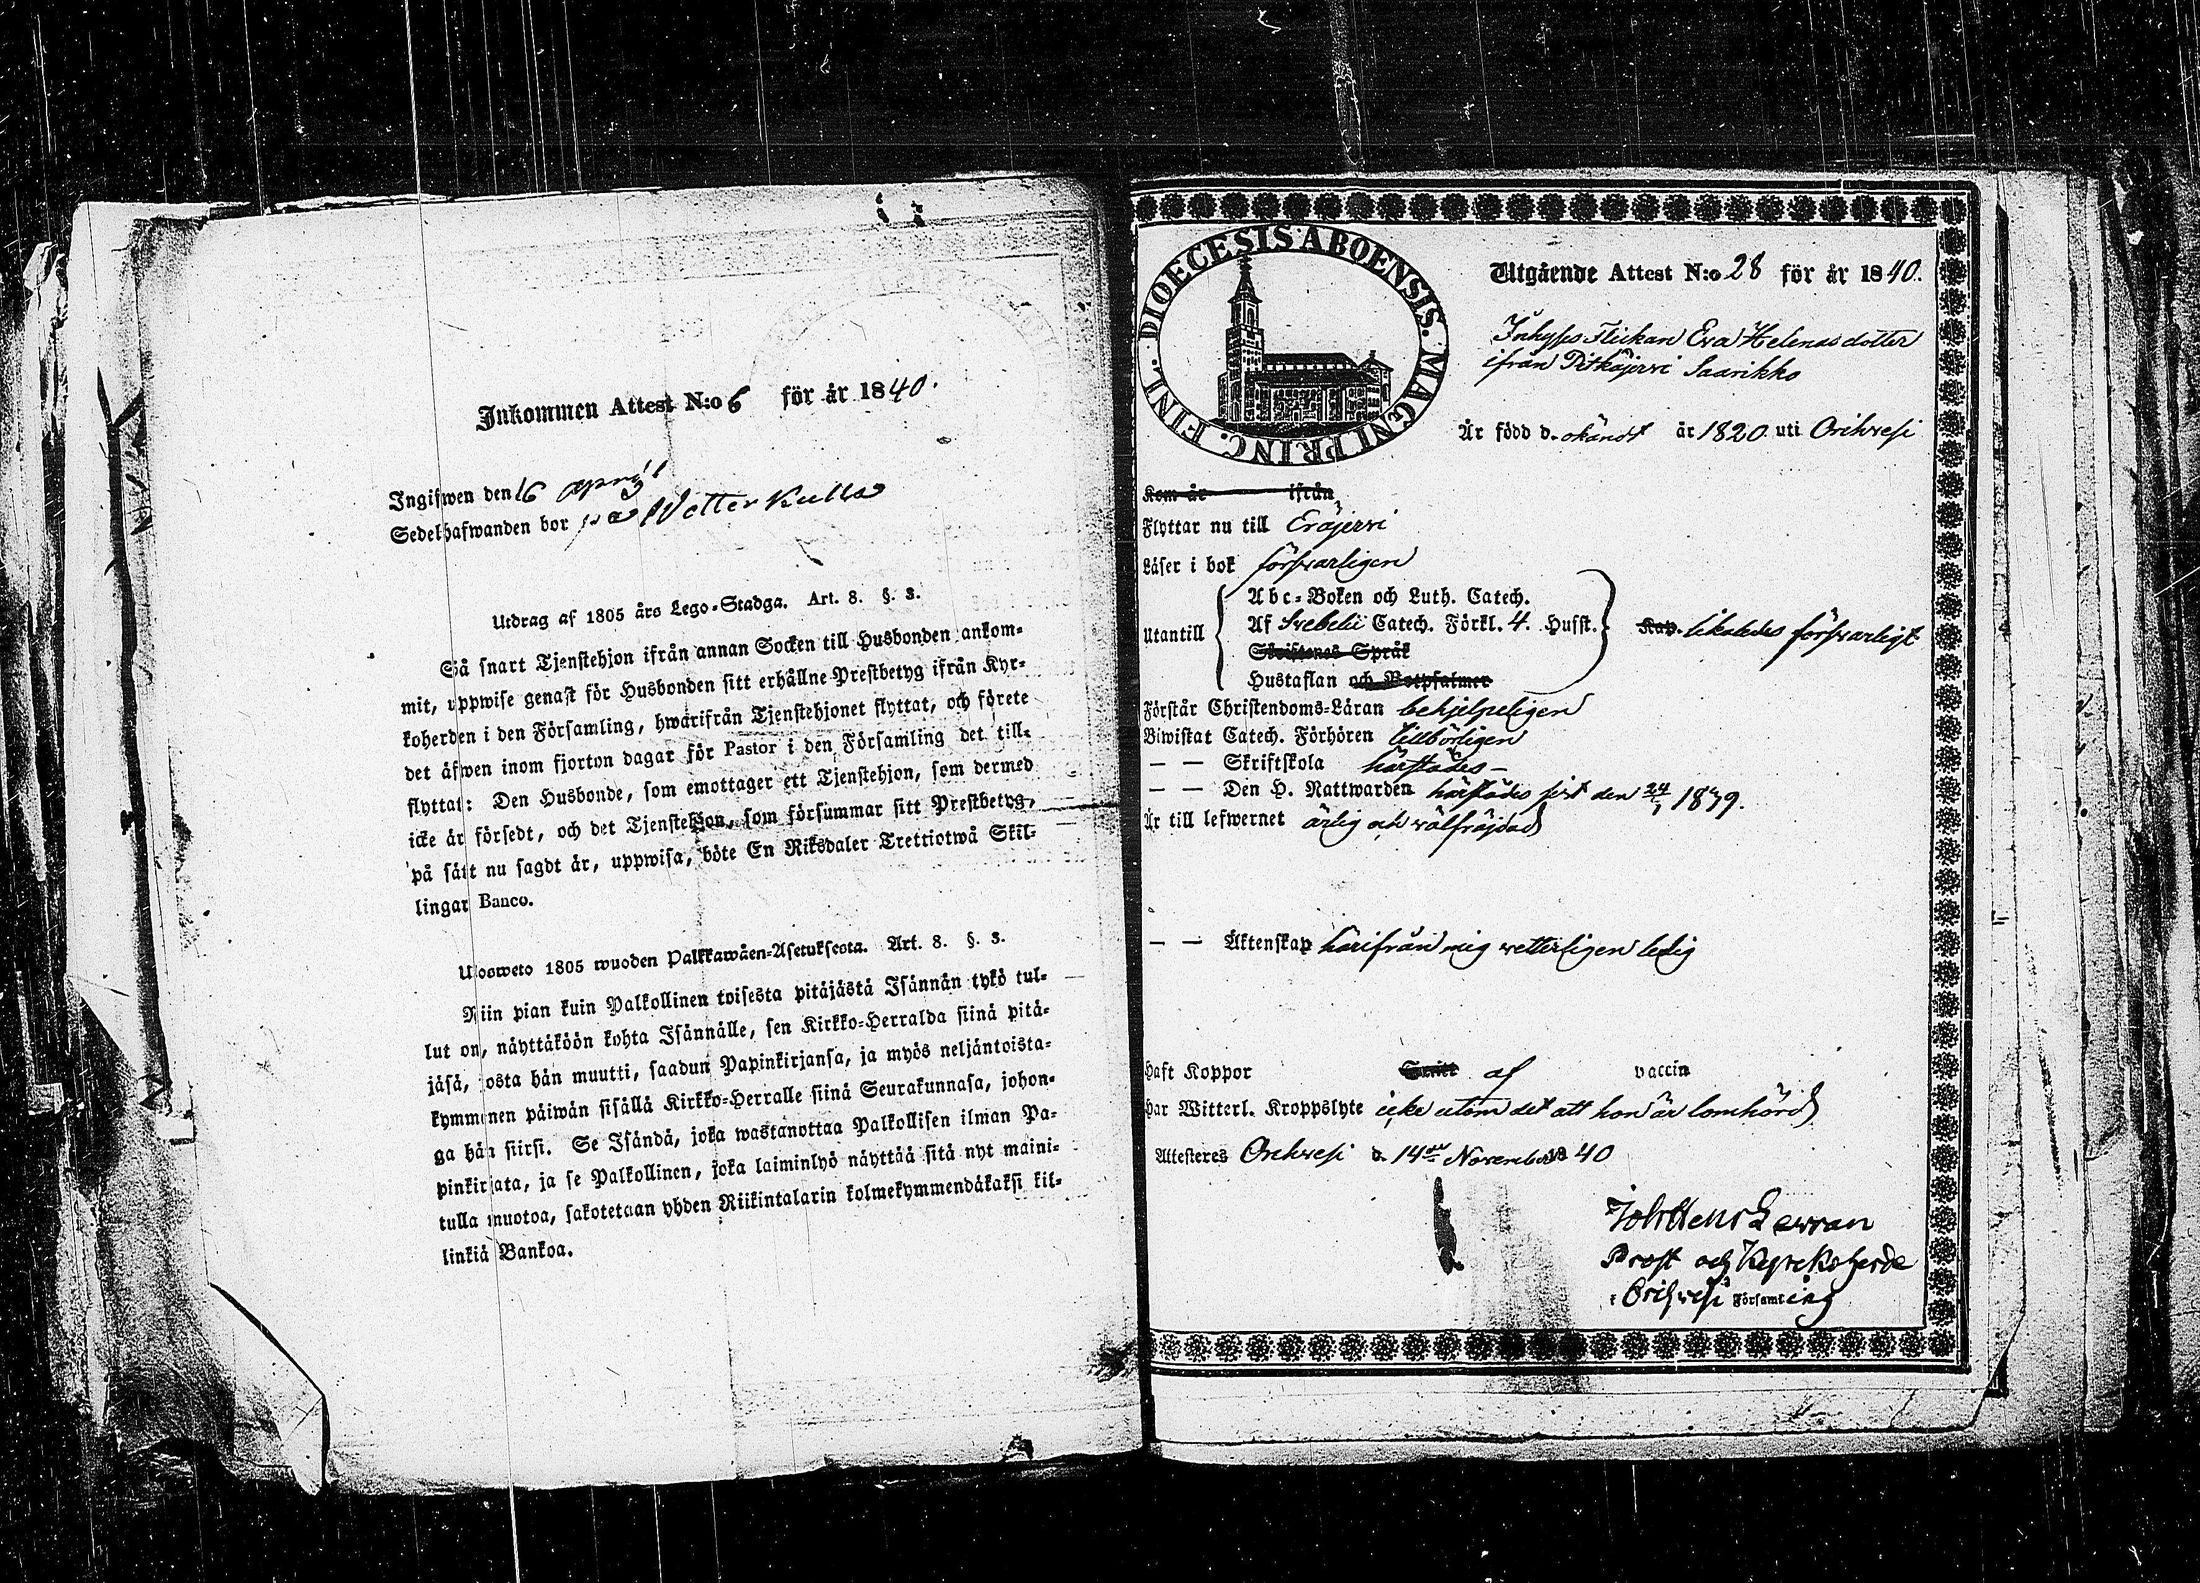 Inkommen Attest N:o 6 för år 1840.
Ingifwen den 16 april
Sedelhafwanden bor på Wetterkulla
Utdrag af 1805 års Lego-Stadga. Art. 8. §. 3.
Så snart Tjenstehjon ifrån annan Socken till Husbonden ankom-
mit, uppwise genast för Husbonden sitt erhållne Prestbetyg ifrån Kyr-
koherden i den Församling, hwarifrån Tjenstehjonet flyttat, och förete
det äfwen inom fjorton dagar för Pastor i den Församling det till-
flyttat: Den Husbonde, som emottager ett Tjenstehjon, som dermed
icke är försedt, och det Tjenstehjon, som försummar sitt Prestbetyg,
på sätt nu sagdt är, uppwisa, böte En Riksdaler Trettiotwå Skil-
lingar Banco.
Ulosweto 1805 wuoden Palkkawäen-Asetuksesta. Art. 8. §. 3.
Niin pian kuin Palkollinen toisesta pitäjästä Isännän tykö tul-
lut on, näyttäköön kohta Isännälle, sen Kirkko-Herralda siinä pitä-
jäsä, josta hän muutti, saadun Papinkirjansa, ja myös neljäntoista-
kymmenen päiwän sisällä Kirkko-Herralle siinä Seurakunnasa, johon-
ga hän siirsi. Se Isändä, joka wastanottaa Palkollisen ilman Pa-
pinkirjata, ja se Palkollinen, joka laiminlyö näyttää sitä nyt maini-
tulla muotoa, sakotetaan yhden Riikintalarin kolmekymmendäkaksi kil-
linkiä Bankoa.
DIOECESIS ABOENSIS. MAGNI PRINC. FINL.
Utgående Attest N:o 28 för år 1840.
Inhyses Flickan Eva Helenasdotter
ifrån Pitkäjervi Saarikko
Är född d. okändt år 1820 uti Orihvesi
Kom år ifrån
Flyttar nu till Eräjervi
Läser i bok försvarligen
Abc-Boken och Luth. Catech.
Utantill Af Svebelii Catech. Förkl. 4. Hufst. Kap. likaledes försvarligt
Skriftenes Språk
Hustaflan och Botpsalmer
Förstår Christendoms-Läran behjelpeligen
Biwistat Catech. Förhören tillbörligen
— — Skriftskola härstädes –
— — Den H. Nattwarden härstädes sist den 24/1 1839.
Är till lefwernet ärlig och välfräjdad
— — Äktenskap härifrån mig vetterligen ledig
Haft Koppor af vaccin
Har Witterl. Kroppslyte icke utom det att hon är lomhörd
Attesteras Orihvesi d. 14de November 1840
Prost och Kyrkoherde
i Orihvesi Församling